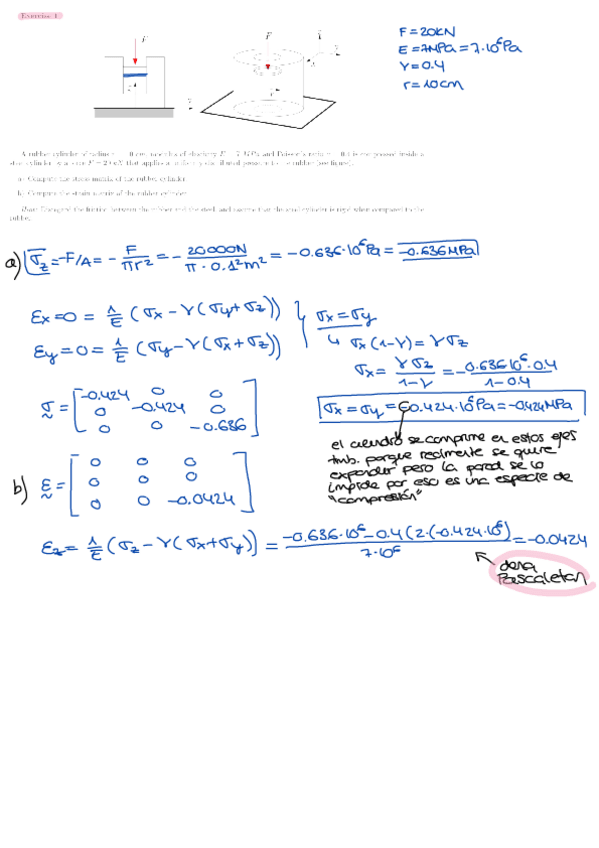 Exercise 1
F = 20kN
E = 7MPa = 7·10⁶Pa
γ = 0.4
r = 10cm
F
F
A rubber cylinder of radius r = 10 cm, modulus of elasticity E = 7 MPa and Poisson's ratio ν = 0.4 is compressed inside a
steel cylinder by a force F = 20 kN that applies a uniformly distributed pressure to the rubber (see figure).
a) Compute the stress matrix of the rubber cylinder.
b) Compute the strain matrix of the rubber cylinder.
Hint: Disregard the friction between the rubber and the steel, and assume that the steel cylinder is rigid when compared to the
rubber.
a) σz = -F/A = - F/πr² = - 20000N/π·0.1²m² = -0.636·10⁶Pa = -0.636MPa
εx = 0 = 1/E (σx - γ(σy+σz))
εy = 0 = 1/E (σy - γ(σx+σz))
σx = σy
↳ σx(1-γ) = γσz
σx = γσz/1-γ = -0.636·10⁶·0.4/1-0.4
σx = σy = -0.424·10⁶Pa = -0.424MPa
σ = [-0.424 0 0
0 -0.424 0
0 0 -0.636]
el cilindro se comprime en estos ejes
tmb. porque realmente se quiere
expander pero la pared se lo
impide por eso es una especie de
"compresión"
b) ε = [0 0 0
0 0 0
0 0 -0.0424]
εz = 1/E (σz - γ(σx+σy)) = -0.636·10⁶-0.4(2·(-0.424·10⁶)/7·10⁶ = -0.0424